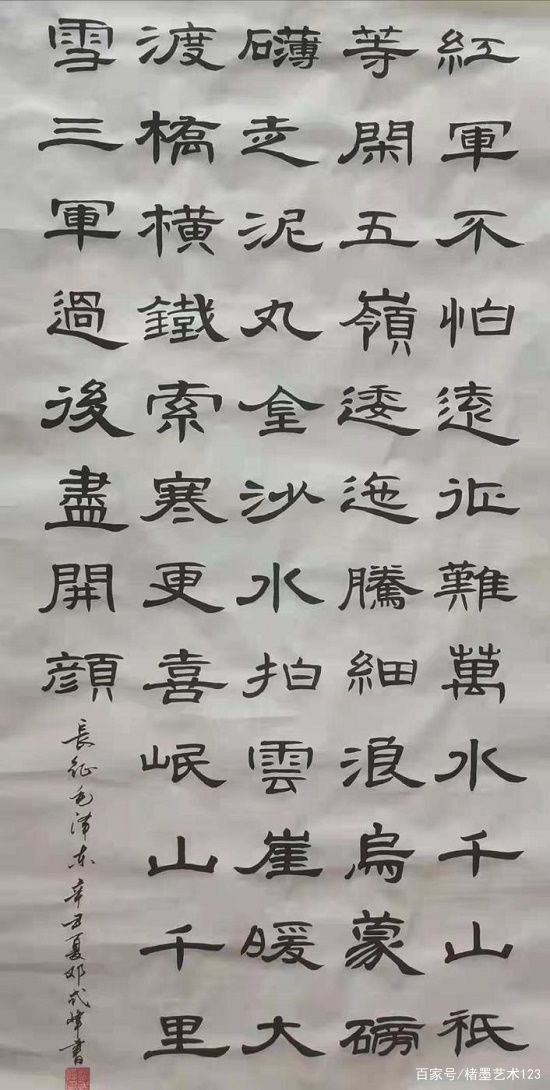 紅軍不怕遠征難萬水千山祇
等閑五嶺逶迤騰細浪烏蒙磅
礴走泥丸金沙水拍雲崖暖大
渡橋橫鐵索寒更喜岷山千里
雪三軍過後盡開顏
長征毛泽东辛丑夏邓武峰書
百家号/楮墨艺术123